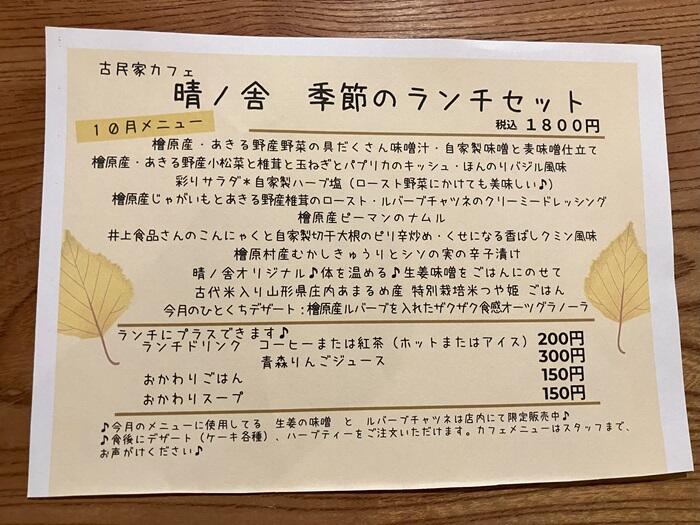 古民家カフェ
晴ノ舎　季節のランチセット
10月メニュー
税込 1800円
檜原産・あきる野産野菜の具だくさん味噌汁・自家製味噌と麦味噌仕立て
檜原産・あきる野産小松菜と椎茸と玉ねぎとパプリカのキッシュ・ほんのりバジル風味
彩りサラダ＊自家製ハーブ塩（ロースト野菜にかけても美味しい♪）
檜原産じゃがいもとあきる野産椎茸のロースト・ルバーブチャツネのクリーミードレッシング
檜原産ピーマンのナムル
井上食品さんのこんにゃくと自家製切干大根のピリ辛炒め・くせになる香ばしクミン風味
檜原村産むかしきゅうりとシソの実の辛子漬け
晴ノ舎オリジナル♪体を温める♪生姜味噌をごはんにのせて
古代米入り山形県庄内あまるめ産 特別栽培米つや姫 ごはん
今月のひとくちデザート：檜原産ルバーブを入れたザクザク食感オーツグラノーラ
ランチにプラスできます♪
ランチドリンク　コーヒーまたは紅茶（ホットまたはアイス） 200円
青森りんごジュース 300円
おかわりごはん 150円
おかわりスープ 150円
♪今月のメニューに使用してる　生姜の味噌　と　ルバーブチャツネは店内にて限定販売中♪
♪食後にデザート（ケーキ各種）、ハーブティーをご注文いただけます。カフェメニューはスタッフまで、
お声がけください♪